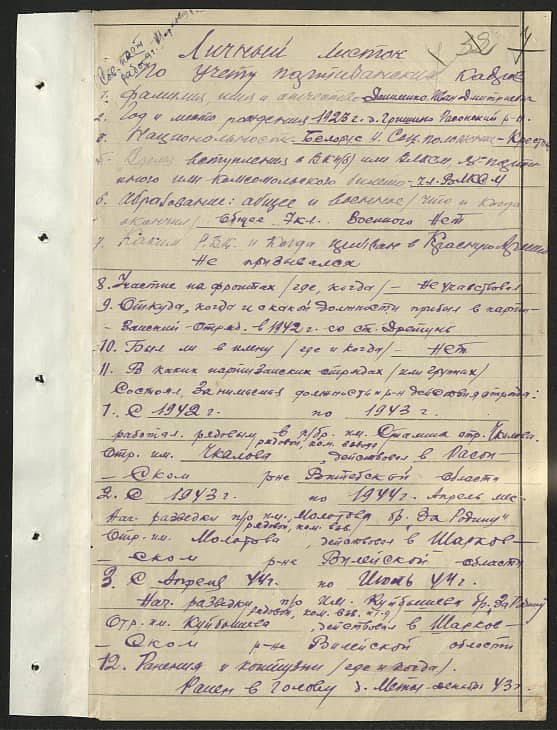 Личный листок
По учету партизанских кадров
1. Фамилия, имя и отчество Иван Дмитриевич
2. Год и место рождения 1923 г. д. Гришино Расонский р-н.
3. Национальность Белорус 4. Соц. положение - Крест.
5. Время вступления в ВКП(б) или ВЛКСМ, № партий-
ного или комсомольского билета - чл. ВЛКСМ
6. Образование: общее и военное /что и когда
окончил/ общее 7 кл. Военного Нет
7. Каким Р.В.К. и когда призван в Красную Армию
Не призывался
8. Участие на фронтах /где, когда/ - Не участвовал
9. Откуда, когда и с какой должности прибыл в парти-
занский отряд. в 1942 г. со ст. Дретунь
10. Был ли в плену /где и когда/ - НЕТ
11. В каких партизанских отрядах /или группах/
состоял, занимаемая должность и р-н действия отряда:
1. С 1942 г. по 1943 г.
работал рядовым в п/бр. им. Сталина отр. Чкалова
рядовой, ком. взвода
Отр. им. Чкалова действовал в Расон-
- ском р-не Витебской области
2. С 1943 г. по 1944 г. Апрель мес.
Нач. разведки п/о им. Молотова бр. "За Родину"
рядовой, ком. взв.
Отр. им. Молотова действовал в Шарков-
- ском р-не Вилейской области
3. С Апреля 44 г. по Июнь 44 г.
Нач. разведки п/о Им. Куйбышева бр. За Родину
рядовой, ком. взв. и т.д.
Отр. им. Куйбышева действовал в Шарков-
- ском р-не Вилейской области
12. Ранения и контузии /где и когда/.
Ранен в голову д. декабрь 43 г.